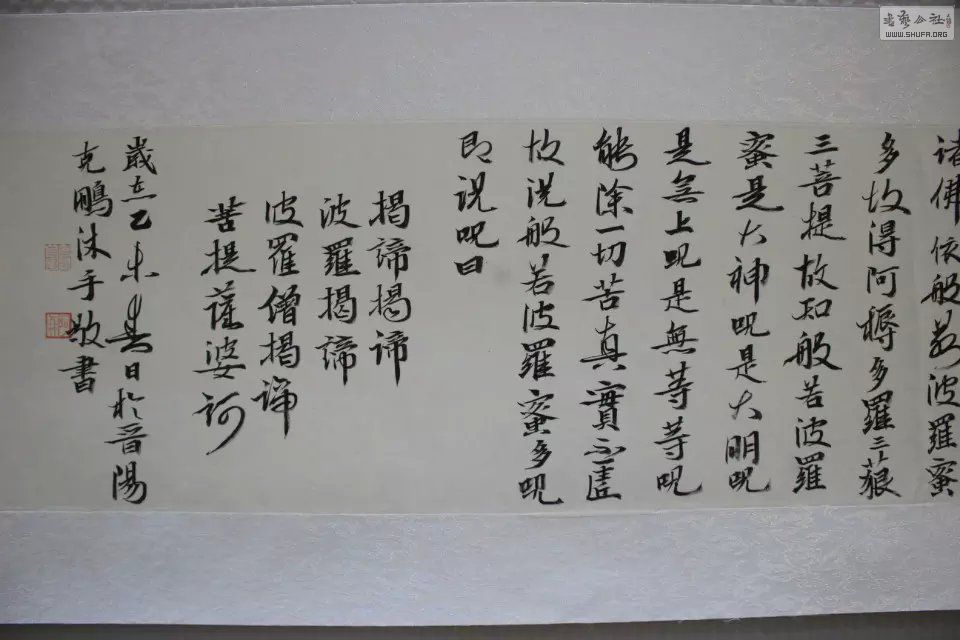 諸佛依般若波羅蜜
多故得阿耨多羅三藐
三菩提故知般若波羅
蜜是大神呪是大明呪
是無上呪是無等等呪
能除一切苦真實不虛
故説般若波羅蜜多呪
即説呪曰
揭諦揭諦
波羅揭諦
波羅僧揭諦
菩提薩婆訶
歲在乙未春日於晉陽
克鵬沐手敬書
書藝公社
WWW.SHUFA.ORG